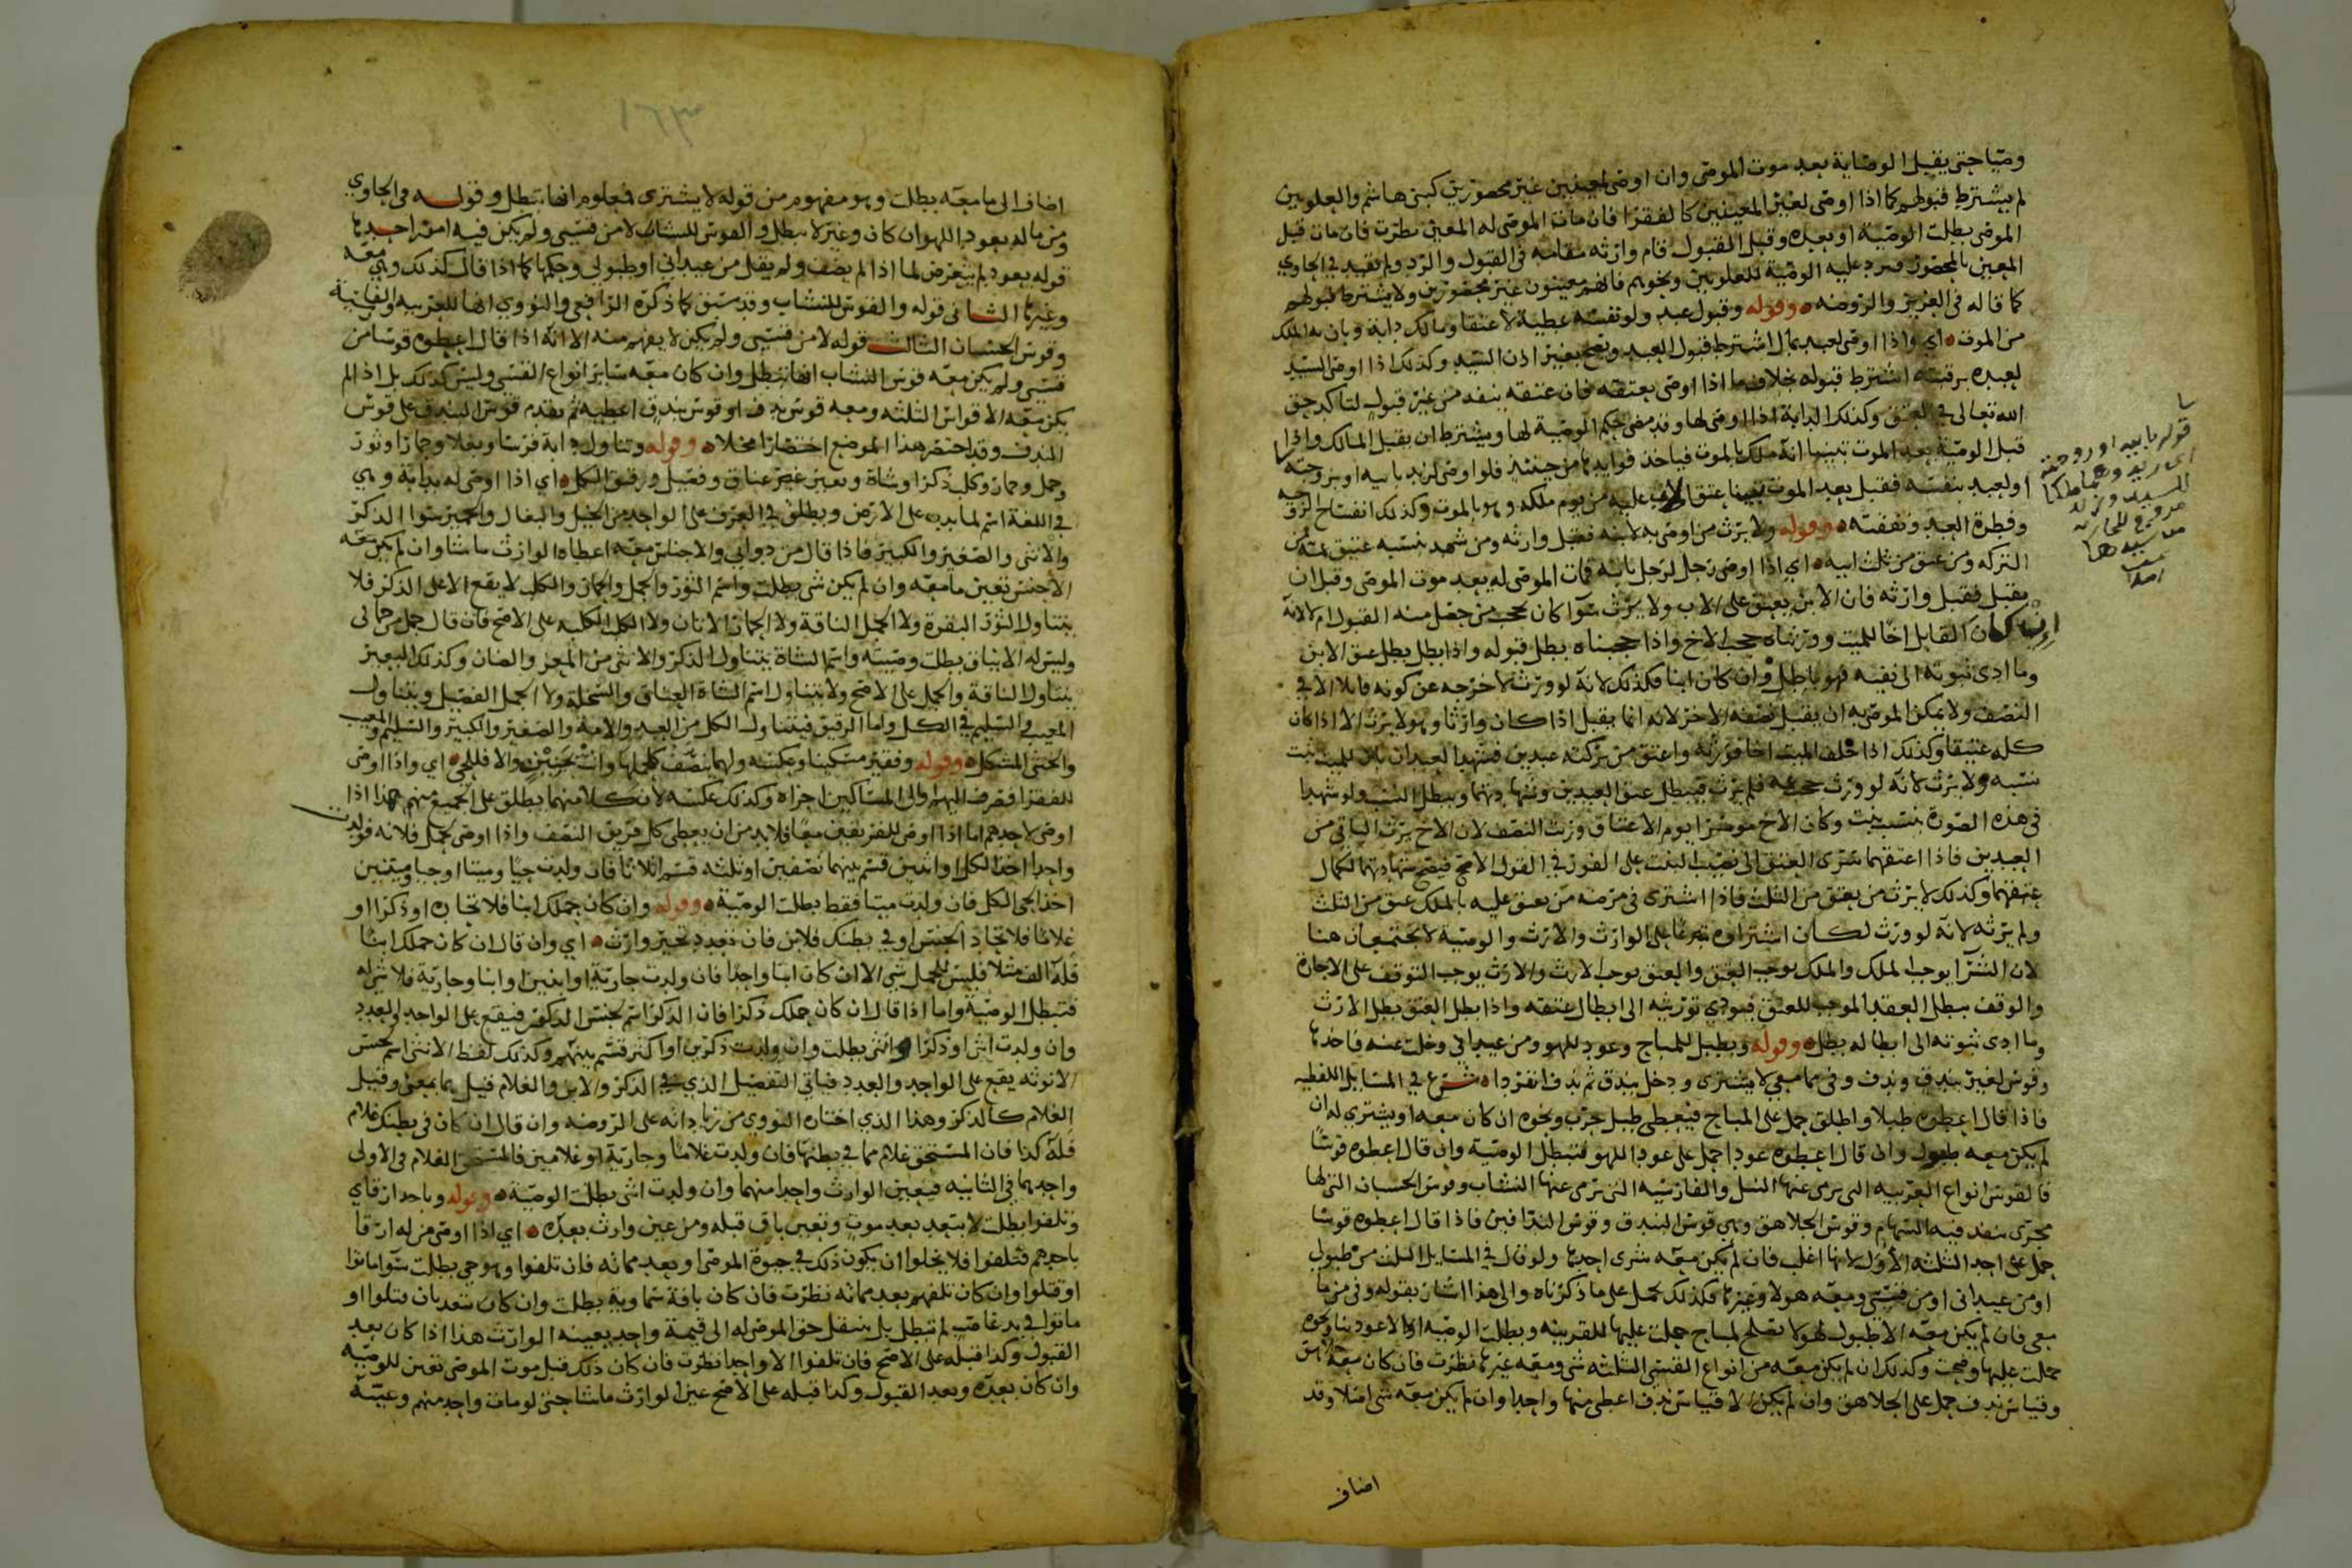 وصيا حتى يقبل الوصاية بعد موت الموصي وان اوصى لمعينين غير محصورين كبني هاشم والعلويين
لم يشترط قبولهم كما اذا اوصى لغير المعينين كالفقرا فان مات الموصى له المعين نظرت فان مات قبل
الموصي بطلت الوصية او بعده وقبل القبول قام وارثه مقامه في القبول والرد ولم يقيد في الحاوي
المعين بالمحصور فيرد عليه الوصية للعلويين ونحوهم فانهم معينون غير محصورين ولا يشترط قبولهم
كما قاله في العزيز والروضه وقوله وقبول عبد ولو نفسه عطية لا عتقا ومالك دابة وبان به الملك
من الموت اي واذا اوصى لعبد بمال اشترط قبول العبد ويصح بغير اذن السيد وكذلك اذا اوصى السيد
لعبده برقبته اشترط قبوله بخلاف ما اذا اوصى بعتقه فان عتقه ينفذ من غير قبول لتاكد حق
الله تعالى في العتق وكذلك الدابة اذا اوصى لها وقد مضى حكم الوصية لها ويشترط ان يقبل المالك واذا
قبل الوصية بعد الموت تبينا انه ملك بالموت فياخذ فوايدها من حينئذ فلو اوصى لزيد بابيه او بزوجته
او لعبد بنفسه فقبل بعد الموت تبينا عتق الاب عليه من يوم ملكه وهو بالموت وكذلك انفساخ الزوجيه
وفطرة العبد ونفقته وقوله ولا يرث من اوصى به لابنه فقبل وارثه ومن شهد بنسبه عتيق عمه من
التركه ومن عتق من ثلث ابيه اي اذا اوصى رجل لرجل بابنه فمات الموصى له بعد موت الموصي وقبل ان
يقبل فقبل وارثه فان الابن يعتق على الاب ولا يرث سوا كان يحجب من حصل منه القبول ام لا لانه
ان كان القابل اخا للميت وورثناه حجب الاخ واذا حجبناه بطل قبوله واذا بطل بطل عتق الابن
وما ادى ثبوته الى نفيه فهو باطل وان كان ابنا فكذلك لانه لو ورث لاخرجه عن كونه قابلا الا في
النصف ولا يمكن الموصى به ان يقبل نصفه الاخر لانه انما يقبل اذا كان وارثا وهو لا يرث الا اذا كان
كله عتيقا وكذلك اذا خلف الميت اخا فورثه واعتق من تركته عبدين فشهد العبدان بان للميت بنت
نسبه ولا يرث لانه لو ورث حجب عمه فلم يرث فيبطل عتق العبدين وشهادتهما ويبطل النسب ولو شهدا
في هذه الصورة بنسب بنت وكان الاخ موسرا يوم الاعتاق ورثت النصف لان الاخ يرث الباقي من
العبدين فاذا اعتقهما سرى العتق الى نصيب البنت على الفور في القول الاصح فيصح شهادتهما لكمال
عتقهما وكذلك لا يرث من يعتق من الثلث فاذا اشترى في مرضه من يعتق عليه بالملك عتق من الثلث
ولم يرثه لانه لو ورث لكان اشتراوه تبرعا على الوارث والارث والوصية لا يجتمعان هنا
لان الشرا يوجب الملك والملك يوجب العتق والعتق يوجب الارث والارث يوجب التوقف على الاجازة
والوقف يبطل العقد الموجب للعتق فيودي توريثه الى ابطال عتقه واذا بطل العتق بطل الارث
وما ادى ثبوته الى ابطاله بطل وقوله وبطبل للمباح وعود للهو ومن عيداني وخلت عنه فاحدها
وقوس لغير بندق وندف وفي ما معي لا يشترى ودخل بندق ثم ندف انفردا شرع في المسايل اللفظيه
فاذا قال اعطوه طبلا واطلق حمل على المباح فيعطى طبل حرب ونحوه ان كان معه او يشترى له ان
لم يكن معه طبول وان قال اعطوه عودا حمل على عود اللهو فتبطل الوصية وان قال اعطوه قوسا
فالقوس انواع العربيه التي يرمى عنها النبل والفارسيه التي ترمى عنها النشاب وقوس الحسبان التي لها
مجرى ينفذ فيه السهام وقوس الجلاهق وهي قوس البندق وقوس الندافين فاذا قال اعطوه قوسا
حمل على احد الثلثه الاول لانها اغلب فان لم يكن معه شرى احدها ولو قال في المسايل الثلث من طبولي
او من عيداني او من قسيي ومعه هولا وغيرها فكذلك يحمل على ما ذكرناه والى هذا اشار بقوله وفي من ما
معي فان لم يكن معه الا طبول لهو لا تصلح لمباح حملت عليها للقرينه وبطلت الوصيه او الا عود بنا ونحوه
حملت عليها وصحت وكذلك ان لم يكن معه من انواع القسي الثلثه شي ومعه غيرها نظرت فان كان معه جلاهق
وقياس ندف حمل على الجلاهق وان لم يكن الا قياس ندف اعطي منها واحدا وان لم يكن معه شي اصلا وقد
اضاف
قوله بابيه او بزوجته
١٦٣
اضاف الى ما معه بطلت وهو مفهوم من قوله لا يشترى فمعلوم انها تبطل وقوله في الحاوي
ومن ماله بعود اللهو ان كان وغيره لا تبطل والقوس للنشاب لا من قسيي ولم يكن فيه امور احدها
قوله بعود لم يتعرض لما اذا لم يضف ولم يقل من عيداني او طبولي وحكمها كما اذا قال كذلك وهي معه
وغيرها الثاني قوله والقوس للنشاب وقد سبق كما ذكره الرافعي والنووي انها للعربيه والفارسية
وقوس الحسبان الثالث قوله لا من قسيي ولم يكن لا يفهم منه الا انه اذا قال اعطوه قوسا من
قسيي ولم يكن معه قوس النشاب انها تبطل وان كان معه ساير انواع القسي وليس كذلك بل اذا لم
يكن معه الاقواس الثلثه ومعه قوس ندف او قوس بندق اعطيه ثم يقدم قوس البندق على قوس
الندف وقد اختصر هذا الموضع اختصارا مخلا وقوله وتناول دابة فرسا وبغلا وحمارا وثور
وجمل وحمار وكلب ذكرا وشاة وبعير غير عناق وفصيل ورقيق الكل اي اذا اوصى له بدابة وهي
في اللغة اسم لما يدب على الارض ويطلق في العرف على الواحد من الخيل والبغال والحمير سوا الذكر
والانثى والصغير والكبير فاذا قال من دوابي والاجناس معه اعطاه الوارث ما شا وان لم يكن معه
الا جنس تعين ما معه وان لم يكن شي بطلت واسم الثور والجمل والحمار والكلب لا يقع الا على الذكر فلا
يتناول الثور البقرة ولا الجمل الناقة ولا الحمار الاتان ولا الكلب الكلبه على الاصح فان قال جمل من جمالي
وليس له الا نياق بطلت وصيته واسم الشاة يتناول الذكر والانثى من المعز والضان وكذلك البعير
يتناول الناقة والجمل على الاصح ولا يتناول اسم الشاة العناق والسخلة ولا الجمل الفصيل ويتناول
المعيب والسليم في الكل واما الرقيق فيتناول الكل من العبد والامة والصغير والكبير والسليم والمعيب
والخنثى المشكل وقوله وفقير مسكينا وعكسه ولهما ينصف كلحملها وانت بحيين والا فللحي اي واذا اوصى
للفقرا فصرف اليهم والى المساكين اجزاه وكذلك عكسه لان كلا منهما يطلق على الجميع منهم هذا اذا
اوصى لاحدهم اما اذا اوصى للفريقين معا فلا بد من ان يعطى كل فريق النصف واذا اوصى لحمل فلانه فولدت
واحدا اخذ الكل او اثنين قسم بينهما نصفين او ثلثه قسم اثلاثا فان ولدت حيا وميتا او حيا وميتين
اخذ الحي الكل فان ولدت ميتا فقط بطلت الوصية وقوله وان كان حملك ابنا فلاتحاده او ذكرا او
غلاما فلاتحاد الجنس او في بطنك فلابن فان تعدد تخير وارث اي وان قال ان كان حملك ابنا
فله الف مثلا فليس للحمل شي الا ان كان ابنا واحدا فان ولدت جارية او ابنين او ابنا وجارية فلا شي له
فتبطل الوصية واما اذا قال ان كان حملك ذكرا فان الذكر اسم لجنس الذكور فيقع على الواحد والعدد
وان ولدت انثى او ذكرا وانثى بطلت وان ولدت ذكرين او اكثر قسم بينهم وكذلك لفظ الانثى اسم لجنس
الانوثه يقع على الواحد والعدد فياتي التفصيل الذي في الذكر والابن والغلام قيل هما بمعنى وقيل
الغلام كالذكر وهذا الذي اختاره النووي من زياداته على الروضه وان قال ان كان في بطنك غلام
فله كذا فان المستحق غلام مما في بطنها فان ولدت غلاما وجارية او غلامين فالمستحق الغلام في الاولى
واحدهما في الثانيه فيعين الوارث واحدا منهما وان ولدت انثى بطلت الوصية وقوله وباحد ارقاي
وتلفوا بطلت لا بتعد بعد موت وتعين باق قبله ومن عين وارث بعده اي اذا اوصى من له ارقا
باحدهم فتلفوا فلا يخلوا ان يكون ذلك في حيوة الموصي او بعد مماته فان تلفوا وهو حي بطلت سوا ماتوا
او قتلوا وان كان تلفهم بعد مماته نظرت فان كان بافة سماوية بطلت وان كان بتعد بان قتلوا او
ماتوا في يد غاصب لم تبطل بل ينتقل حق الموصى له الى قيمة واحد يعينه الوارث هذا اذا كان بعد
القبول وكذا قبله على الاصح فان تلفوا الا واحدا نظرت فان كان ذلك قبل موت الموصي تعين للوصيه
وان كان بعده وبعد القبول وكذا قبله على الاصح عين الوارث ما شا حتى لو مات واحد منهم وعينه